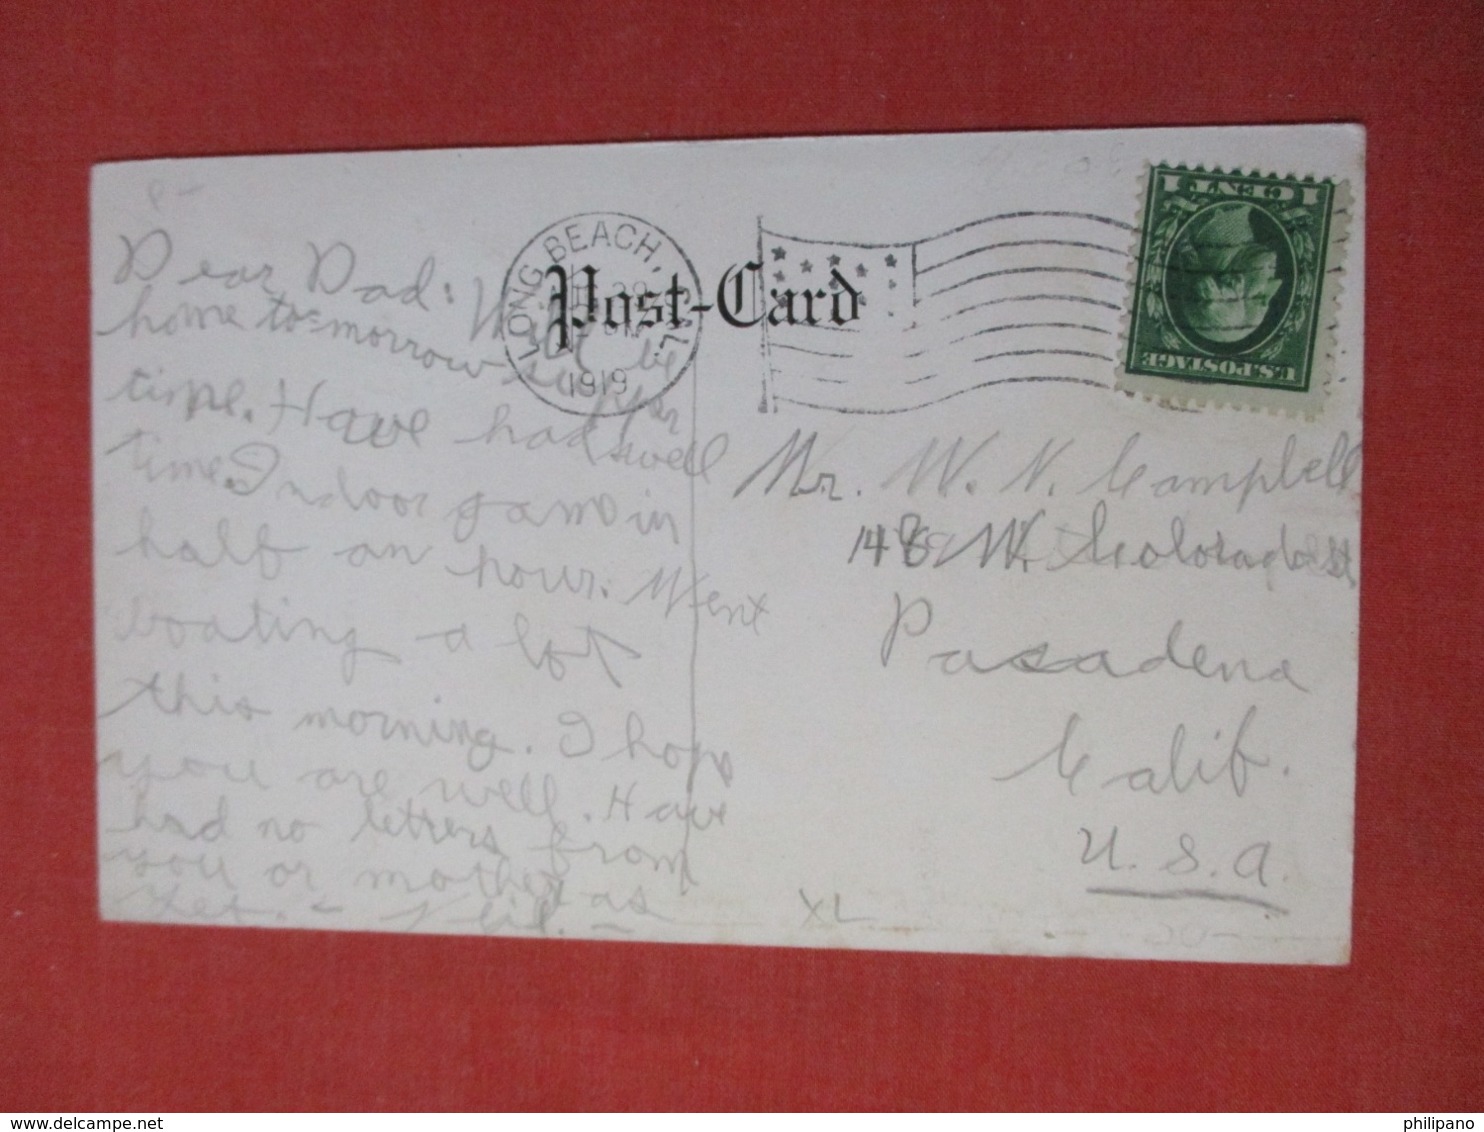 Dear Dad: Will be
home to-morrow supper
time. Have had swell
time. Indoor game in
half an hour. Went
boating a lot
this morning. I hope
you are well. Have
had no letters from
you or mother as
yet. -
Post-Card
LONG BEACH, CAL.
1919
1 CENT 1
U.S. POSTAGE
Mr. W. N. Campbell
148 W. Colorado St
Pasadena
Calif.
U.S.A.
XL
philipano